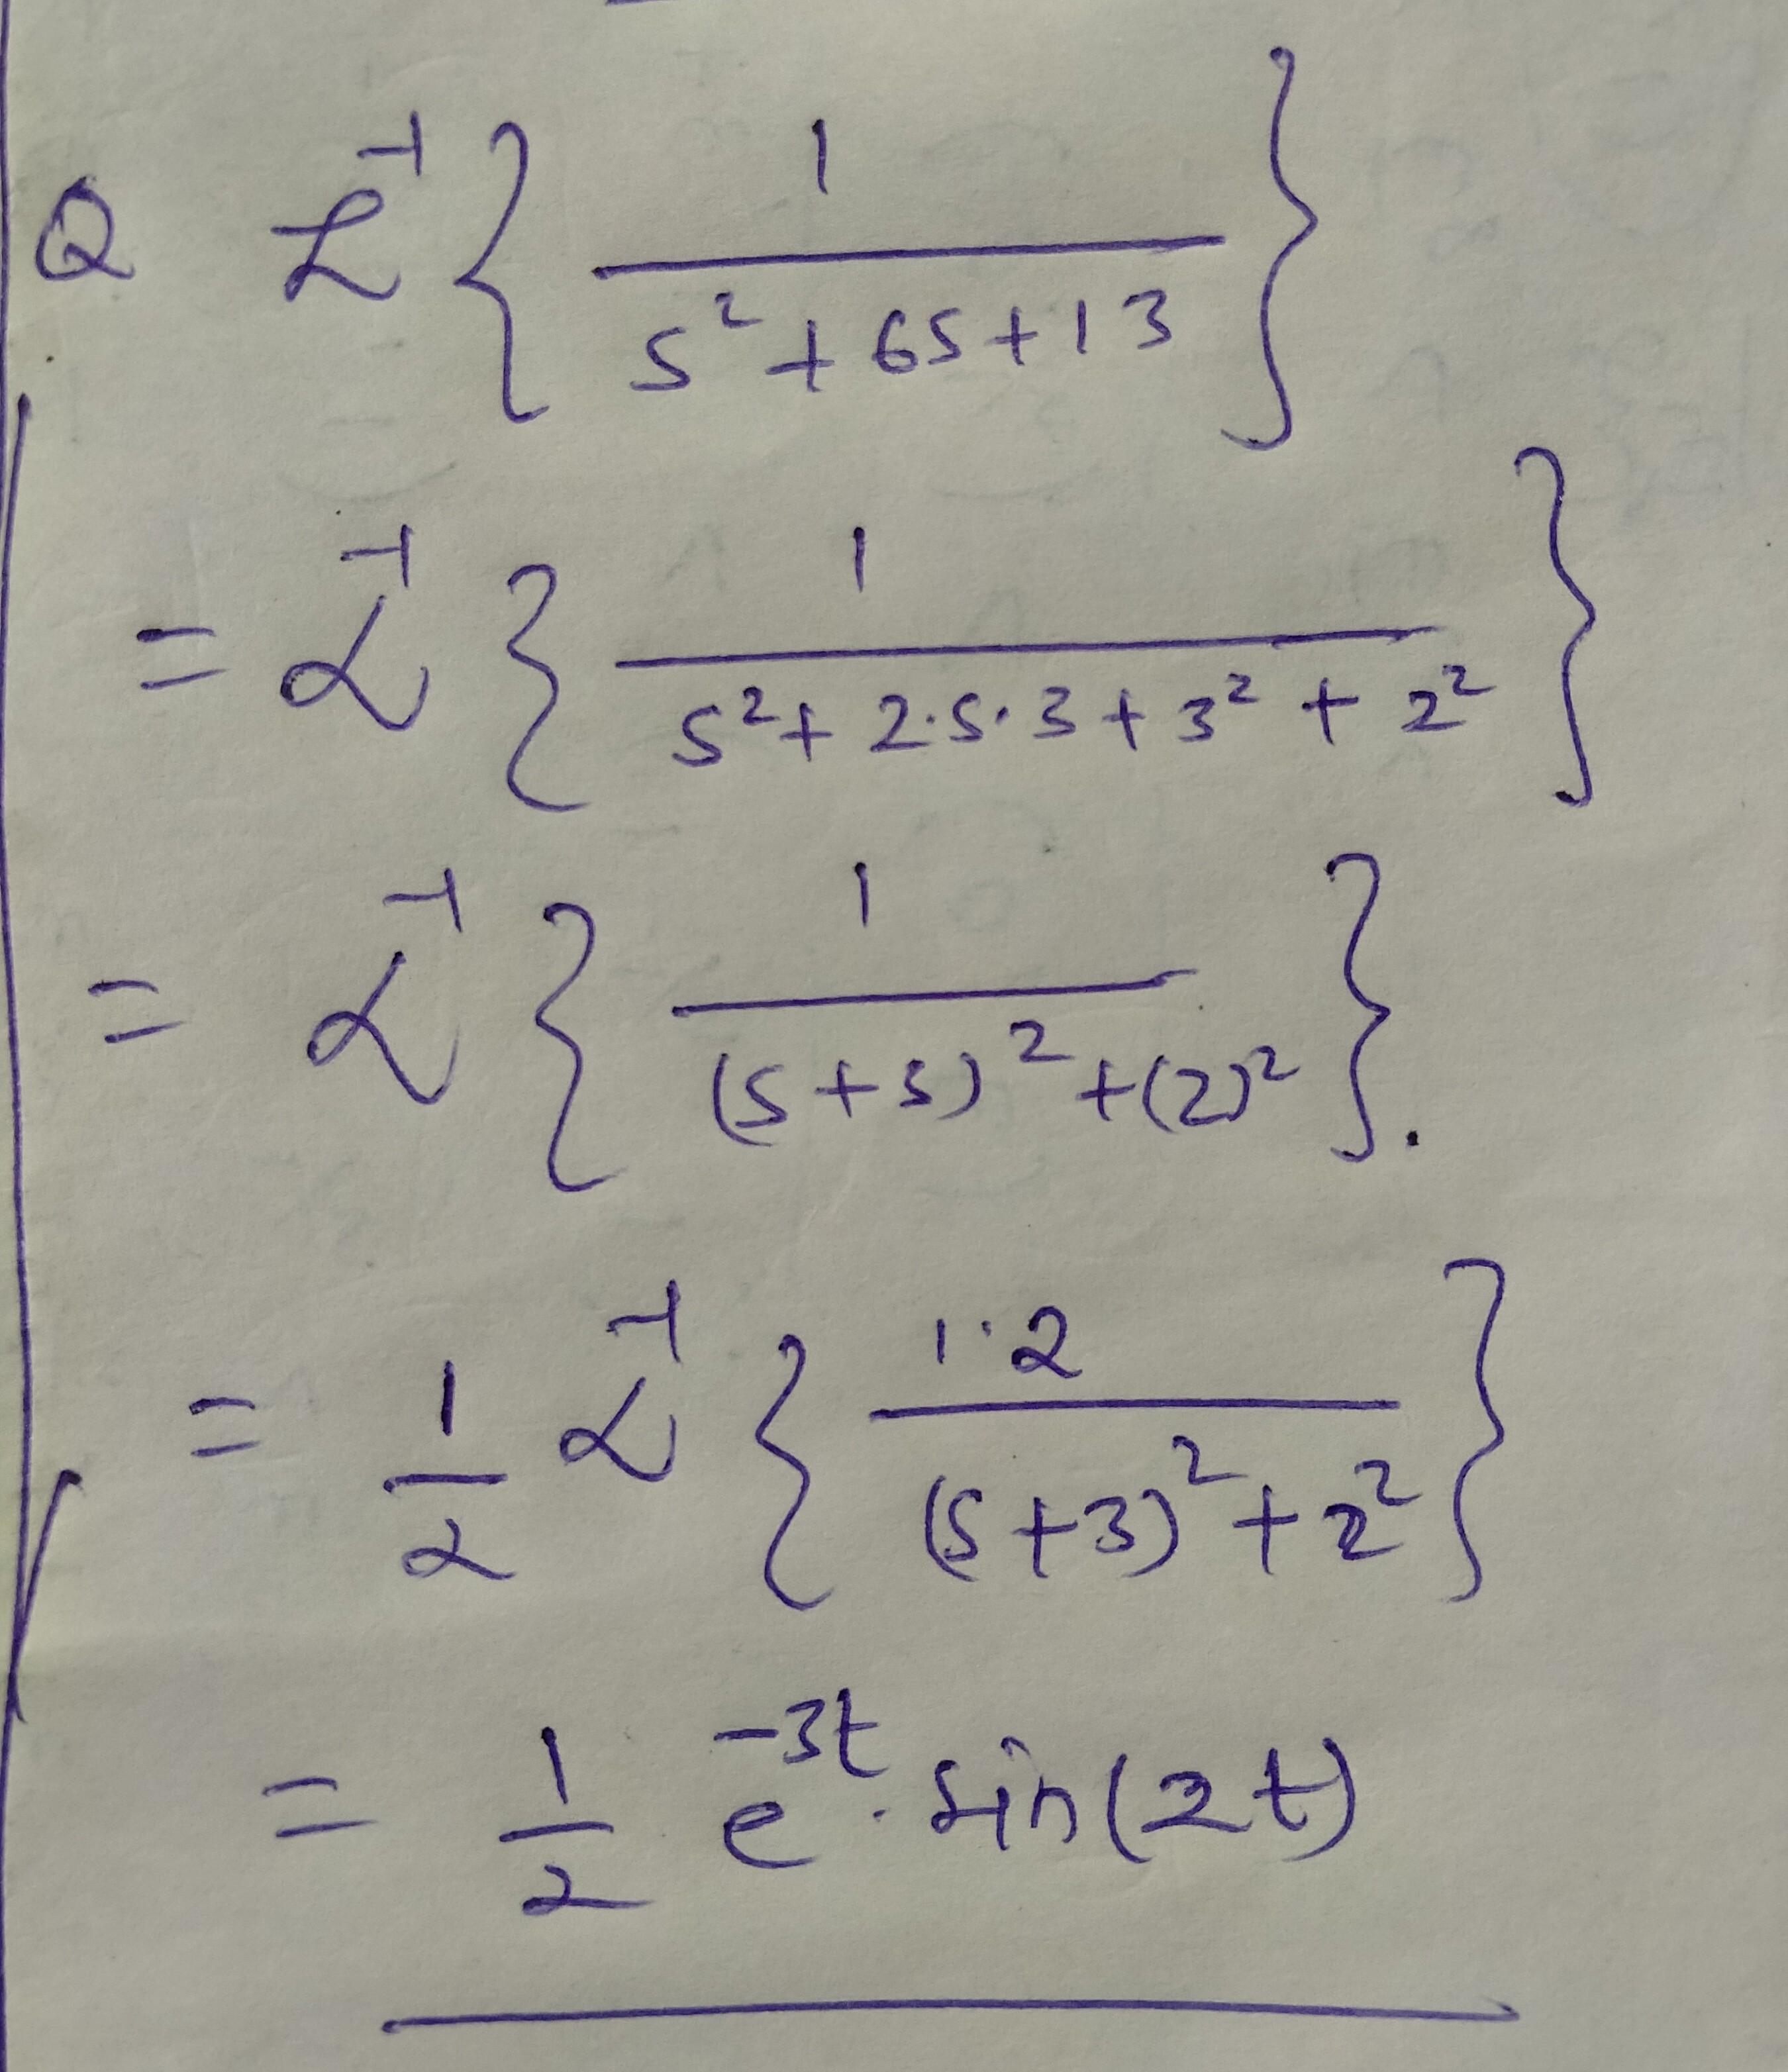 Q L⁻¹{ 1 / (s² + 6s + 13) }
= L⁻¹{ 1 / (s² + 2·s·3 + 3² + 2²) }
= L⁻¹{ 1 / ((s+3)² + (2)²) }.
= 1/2 L⁻¹{ 1·2 / ((s+3)² + 2²) }
= 1/2 e⁻³ᵗ · sin(2t)